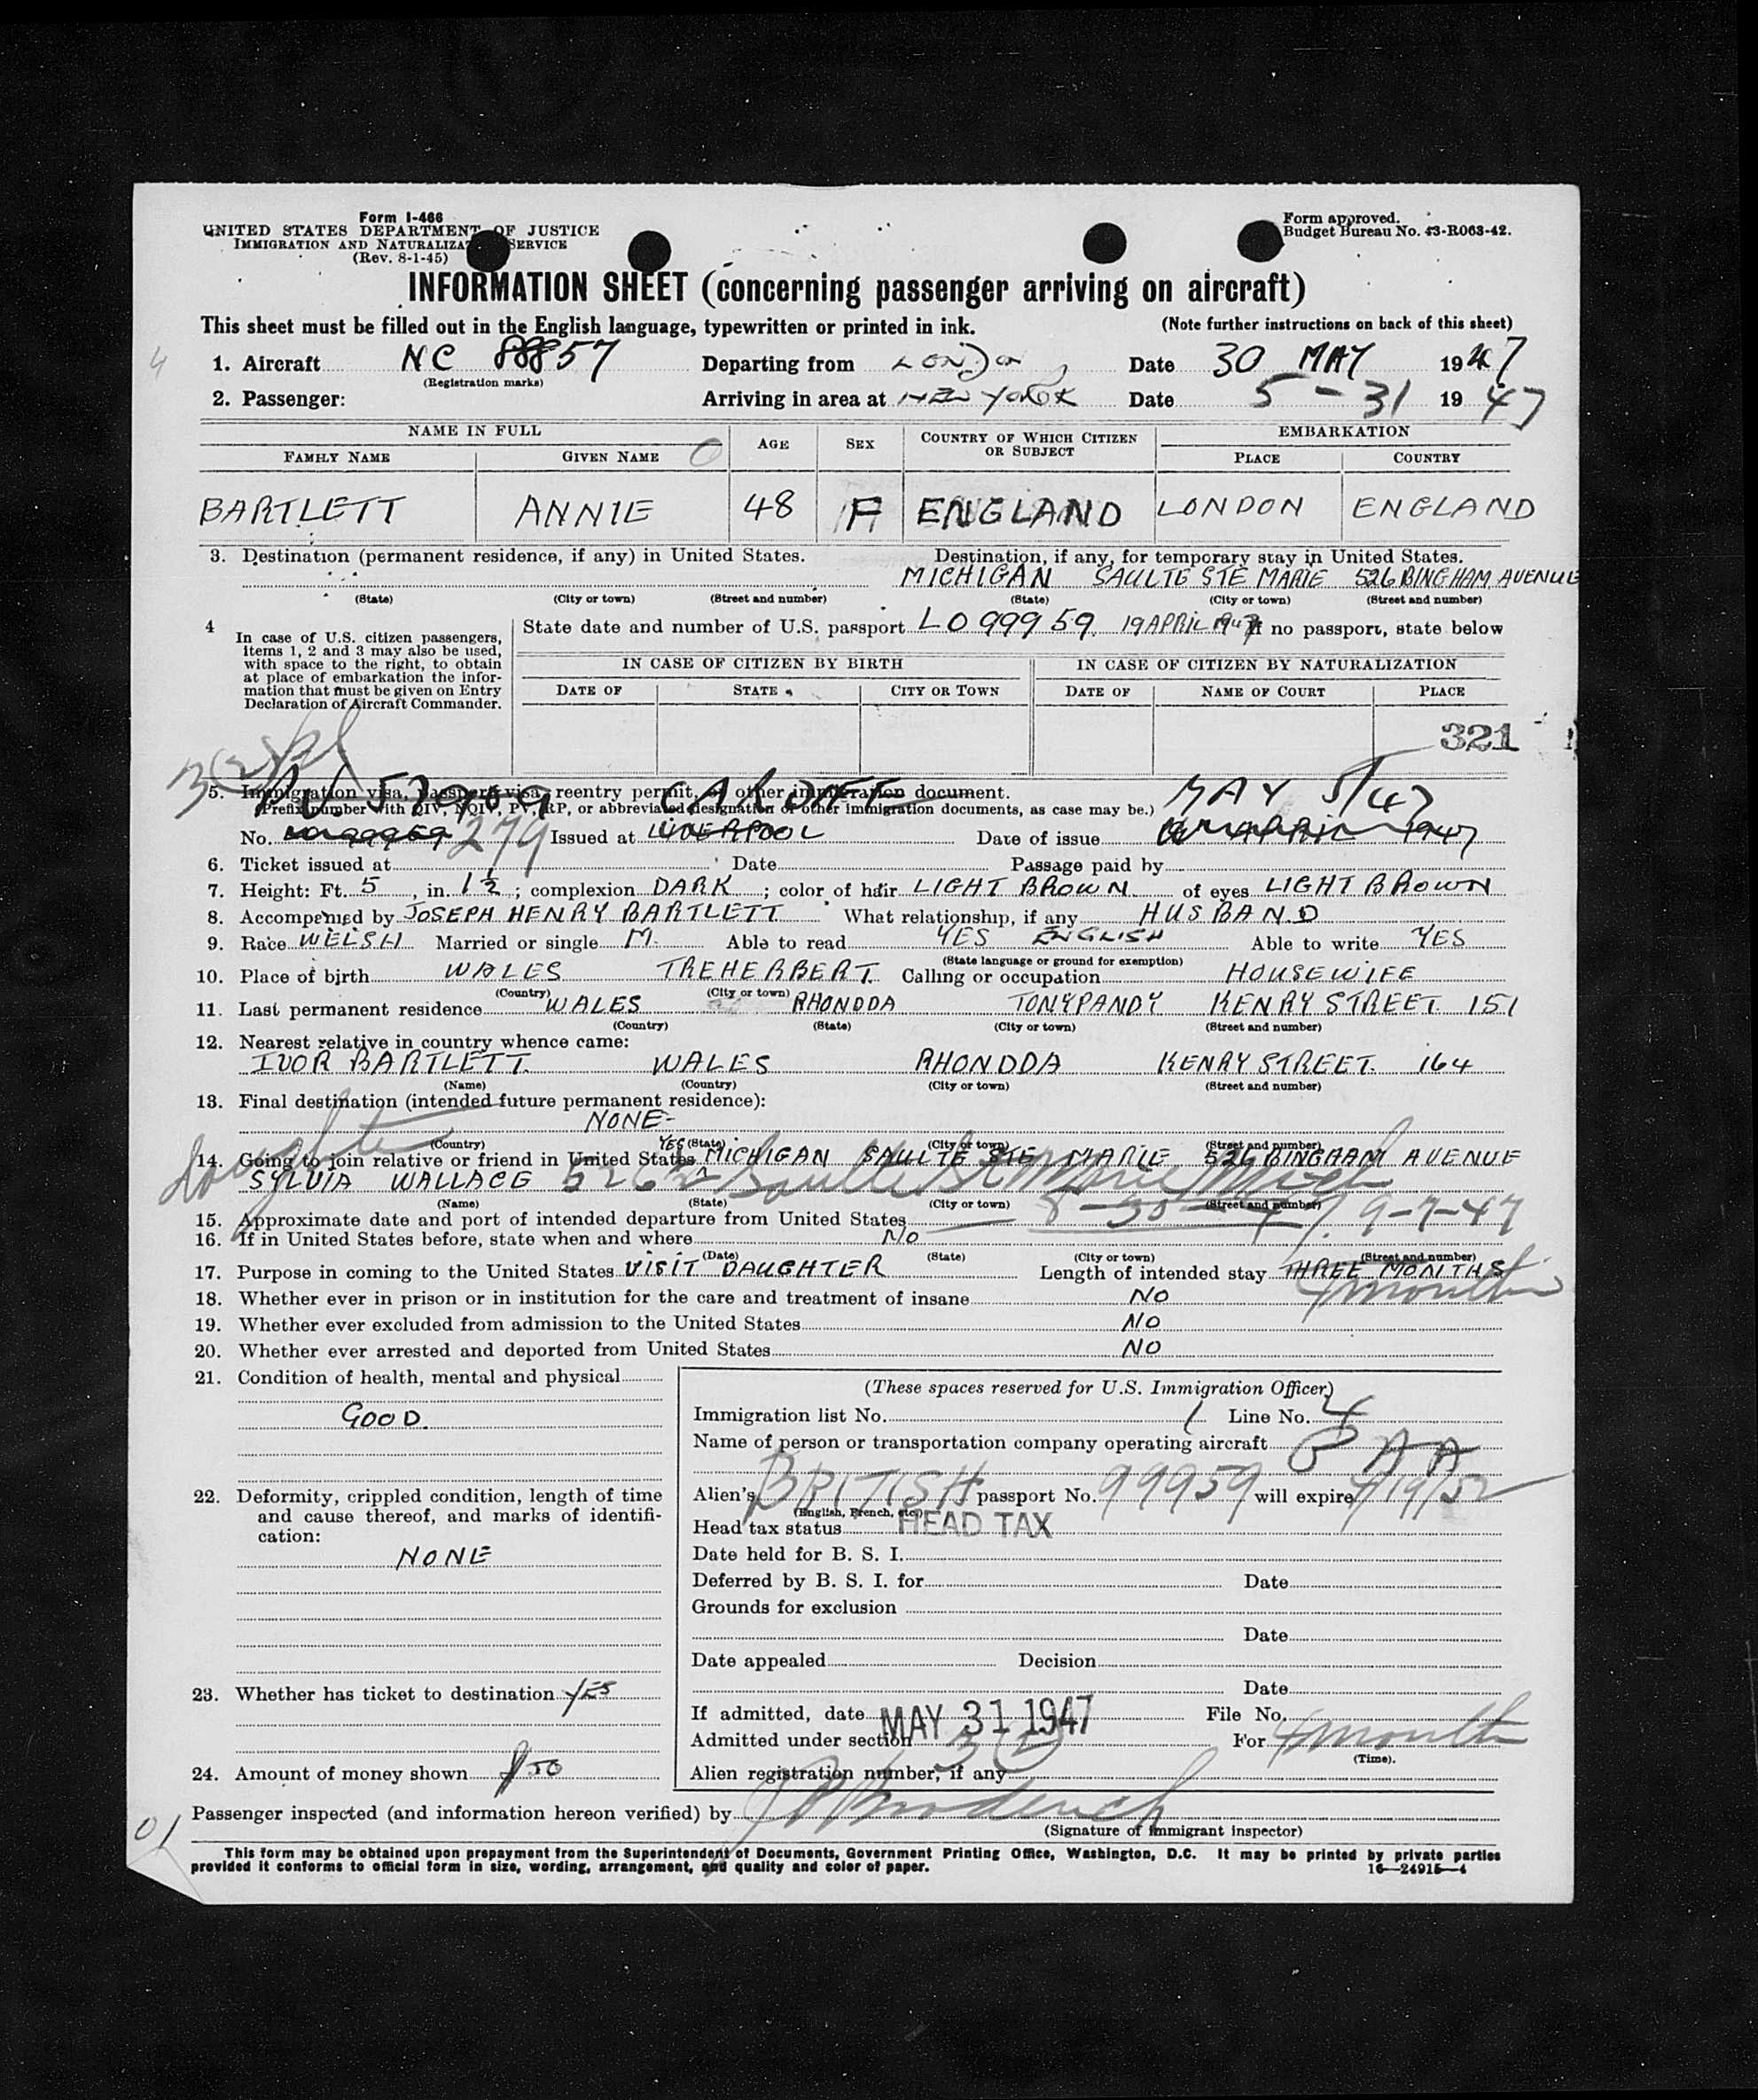 Form I-466
UNITED STATES DEPARTMENT OF JUSTICE
IMMIGRATION AND NATURALIZATION SERVICE
(Rev. 8-1-45)
Form approved.
Budget Bureau No. 43-R063-42.
INFORMATION SHEET (concerning passenger arriving on aircraft)
This sheet must be filled out in the English language, typewritten or printed in ink. (Note further instructions on back of this sheet)
4
1. Aircraft NC 88857 Departing from LONDON Date 30 MAY 1947
(Registration marks)
2. Passenger: Arriving in area at NEW YORK Date 5-31 1947
NAME IN FULL AGE SEX COUNTRY OF WHICH CITIZEN OR SUBJECT EMBARKATION
FAMILY NAME GIVEN NAME PLACE COUNTRY
BARTLETT ANNIE 48 F ENGLAND LONDON ENGLAND
3. Destination (permanent residence, if any) in United States. Destination, if any, for temporary stay in United States.
MICHIGAN SAULTE STE MARIE 526 BINGHAM AVENUE
(State) (City or town) (Street and number) (State) (City or town) (Street and number)
4 In case of U.S. citizen passengers, items 1, 2 and 3 may also be used, with space to the right, to obtain at place of embarkation the information that must be given on Entry Declaration of Aircraft Commander.
State date and number of U.S. passport LO 99959 19 APRIL 1947 If no passport, state below
IN CASE OF CITIZEN BY BIRTH IN CASE OF CITIZEN BY NATURALIZATION
DATE OF STATE CITY OR TOWN DATE OF NAME OF COURT PLACE
321
5. Immigration visa, passport visa, reentry permit, or other immigration document.
CARDIFF MAY 5/47
(Prefix number with QIV, NQIV, PV, RP, or abbreviated designation of other immigration documents, as case may be.)
No. 279 Issued at LIVERPOOL Date of issue 1947
6. Ticket issued at Date Passage paid by
7. Height: Ft. 5, in. 1½; complexion DARK; color of hair LIGHT BROWN of eyes LIGHT BROWN
8. Accompanied by JOSEPH HENRY BARTLETT What relationship, if any HUSBAND
9. Race WELSH Married or single M. Able to read YES ENGLISH Able to write YES
(State language or ground for exemption)
10. Place of birth WALES TREHERBERT. Calling or occupation HOUSEWIFE
(Country) (City or town)
11. Last permanent residence WALES RHONDDA TONYPANDY KENRY STREET. 151
(Country) (State) (City or town) (Street and number)
12. Nearest relative in country whence came:
IVOR BARTLETT. WALES RHONDDA KENRY STREET. 164
(Name) (Country) (City or town) (Street and number)
13. Final destination (intended future permanent residence):
NONE-
(Country) (State) (City or town) (Street and number)
Daughter
14. Going to join relative or friend in United States YES MICHIGAN SAULTE STE MARIE 526 BINGHAM AVENUE
SYLVIA WALLACE 526½ Saulte St Marie Mich
(Name) (State) (City or town) (Street and number)
15. Approximate date and port of intended departure from United States 8-30-47. 9-7-47
16. If in United States before, state when and where NO
(Date) (State) (City or town) (Street and number)
17. Purpose in coming to the United States VISIT DAUGHTER Length of intended stay THREE MONTHS
4 months
18. Whether ever in prison or in institution for the care and treatment of insane NO
19. Whether ever excluded from admission to the United States NO
20. Whether ever arrested and deported from United States NO
21. Condition of health, mental and physical
GOOD.
22. Deformity, crippled condition, length of time and cause thereof, and marks of identification:
NONE
23. Whether has ticket to destination YES
24. Amount of money shown $50
(These spaces reserved for U.S. Immigration Officer)
Immigration list No. 1 Line No. 4
Name of person or transportation company operating aircraft P A A
Alien's BRITISH passport No. 99959 will expire 4/19/52
(English, French, etc.)
Head tax status HEAD TAX
Date held for B. S. I.
Deferred by B. S. I. for Date
Grounds for exclusion
Date
Date appealed Decision
Date
If admitted, date MAY 31 1947 File No.
Admitted under section 3(2) For 4 months
(Time).
Alien registration number, if any
Passenger inspected (and information hereon verified) by
(Signature of immigrant inspector)
01
This form may be obtained upon prepayment from the Superintendent of Documents, Government Printing Office, Washington, D.C. It may be printed by private parties
provided it conforms to official form in size, wording, arrangement, and quality and color of paper. 16—24915-4